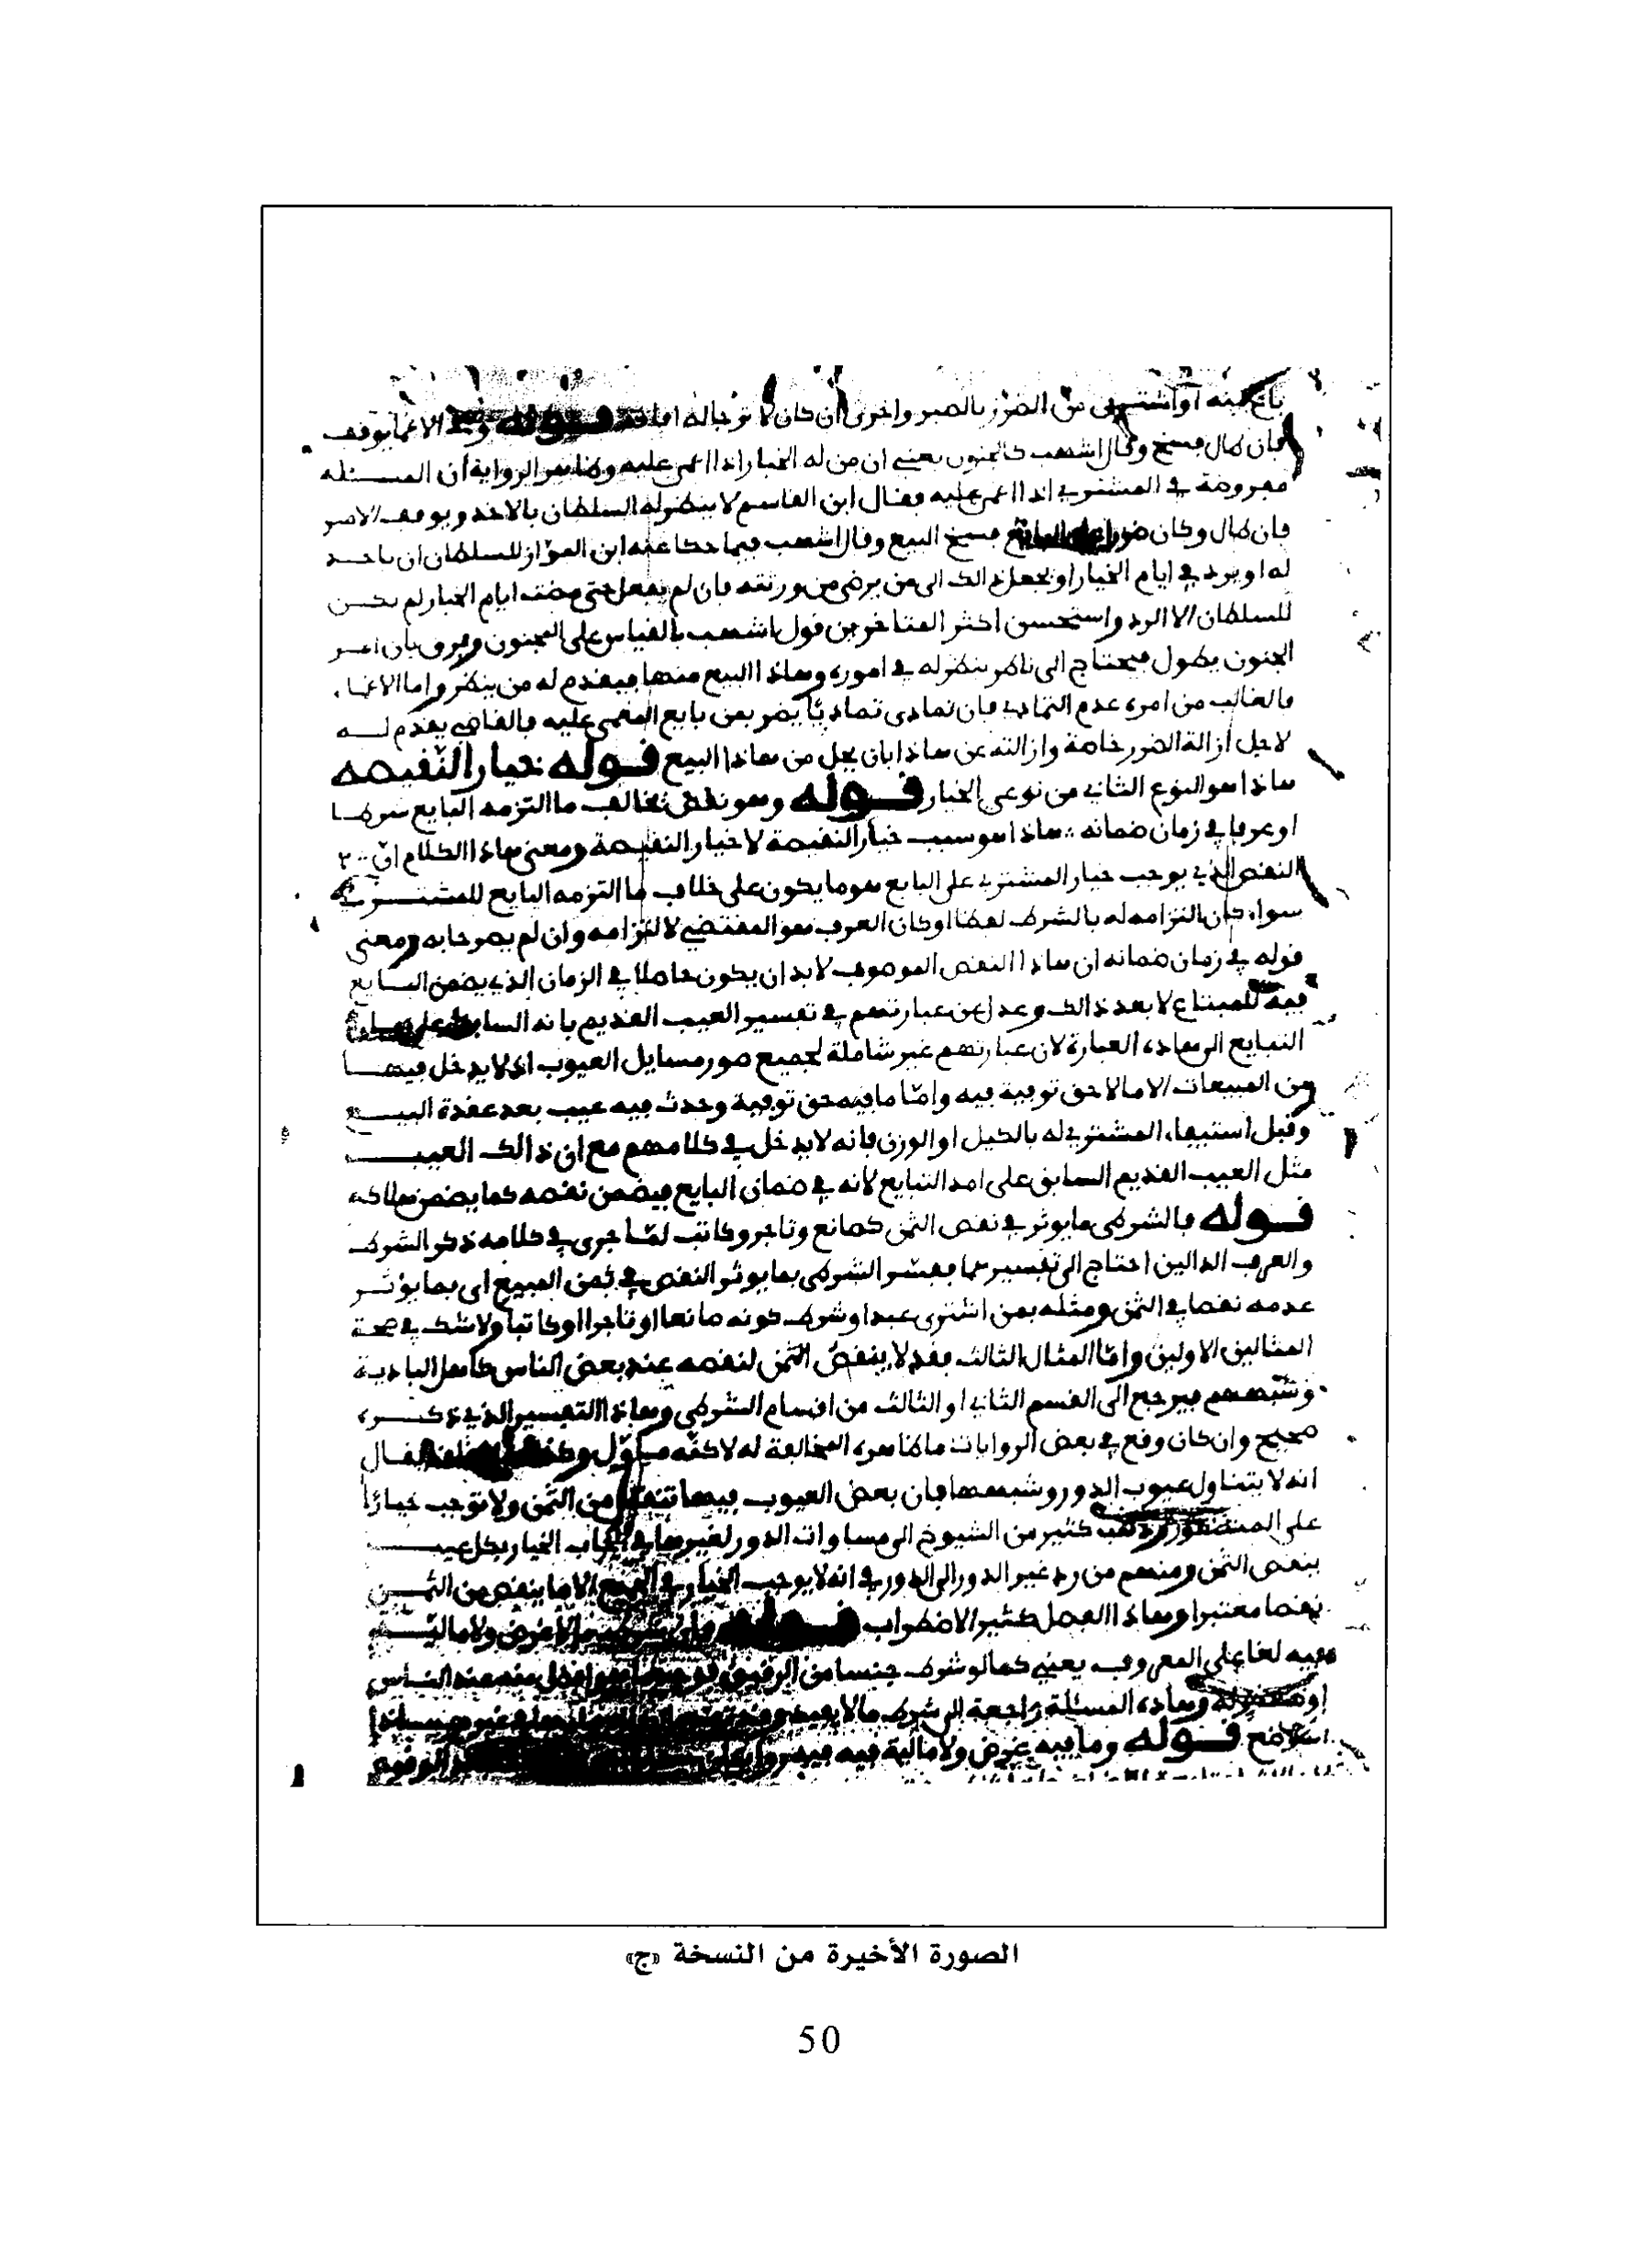 من الضرر بالصبر واحرى ان كان لا توجاله افاقة قوله وفي الاغما يوقف
فان طال فسخ وقال اشهب كالمجنون يعني ان من له الخيار اذا اغمى عليه وظاهر الرواية ان المسئلة
مفروضة في المشتري اذا اغمي عليه فقال ابن القاسم لا ينظر له السلطان بالاخذ ويوقف الامر
فان طال وكان فسخ البيع وقال اشهب فيما حكا عنه ابن المواز للسلطان ان ياخذ
له او يرد في ايام الخيار او يجعل ذالك الى من يرضى من ورثته فان لم يفعل حتى مضت ايام الخيار لم يكن
للسلطان الا الرد واستحسن اكثر المتاخرين قول اشهب بالقياس على المجنون وفرق بان امر
المجنون يطول فيحتاج الى ناظر ينظر له في اموره وهاذا البيع منها فيقدم له من ينظر واما الاغماء
فالغالب من امره عدم التمادي فان تمادى تماديا يضر بمن بايع المغمى عليه فالقاضي يقدم له
لاجل ازالة الضرر خاصة وازالته عن هاذا بان يحل من هاذا البيع قوله خيار النقيصة
هاذا هو النوع الثاني من نوعي الخيار قوله وهو نقص يخالف ما التزمه البايع شرطا
او عرفا في زمان ضمانه هاذا هو سبب خيار النقيصة لا خيار النقيصة ومعنى هاذا الكلام ان
النقص الذي يوجب خيار المشتري على البايع هو ما يكون على خلاف ما التزمه البايع للمشتري
سواء كان التزامه له بالشرط لفظا او كان العرف هو المقتضي لالتزامه وان لم يصرحا به ومعنى
قوله في زمان ضمانه ان هاذا النقص الموصوف لا بد ان يكون حاصلا في الزمان الذي يضمن البايع
فيه للمبتاع لا بعد ذالك وعدل عن عبارتهم في تفسير العيب القديم بانه السابق على
التبايع الى هاذه العبارة لان عبارتهم غير شاملة لجميع صور مسايل العيوب اذ لا يدخل فيها
من المبيعات الا ما لا حق توفية فيه واما ما فيه حق توفية وحدث فيه عيب بعد عقدة البيع
وقبل استيفاء المشتري له بالكيل او الوزن فانه لا يدخل في كلامهم مع ان ذالك العيب
مثل العيب القديم السابق على امد التبايع لانه في ضمان البايع فيضمن نقصه كما يضمن هلاكه
قوله فالشرطي ما يوثر في نقص الثمن كصانع وتاجر وكاتب لما جرى في كلامه ذكر الشرط
والعرف الدالين احتاج الى تفسيرهما ففسر الشرطي بما يوثر النقص في ثمن المبيع اي بما يؤثر
عدمه نقصا في الثمن ومثله بمن اشترى عبدا وشرط كونه صانعا او تاجرا او كاتبا ولا شك في صحة
المثالين الاولين واما المثال الثالث فقد لا ينقص الثمن لنقصه عند بعض الناس كاهل البادية
وشبههم فيرجع الى القسم الثاني او الثالث من اقسام الشرطي وهاذا التفسير الذي ذكره
صحيح وان كان وقع في بعض الروايات ما ظاهره المخالفة له لاكنه مأول فقال
انه لا يتناول عيوب الدور وشبهها فان بعض العيوب فيها تنقص من الثمن ولا توجب خيارا
على كثير من الشيوخ الى مساوات الدور لغيرها في ايجاب الخيار بكل عيب
ينقص الثمن ومنهم من رد غير الدور الى الدور في انه لا يوجب الخيار في المبيع الا ما ينقص من الثمن
نقصا معتبرا وهاذا الفصل كثير الاضطراب قوله لا غرض ولا مالية
فيه لغا على المعروف يعني كما لو شرط جنسا من الرقيق فوجد افضل منه عند الناس
وهاذه المسئلة راجعة الى شرط ما لا يفيد
قوله وما فيه غرض ولا مالية فيه
الصورة الأخيرة من النسخة «ج»
50